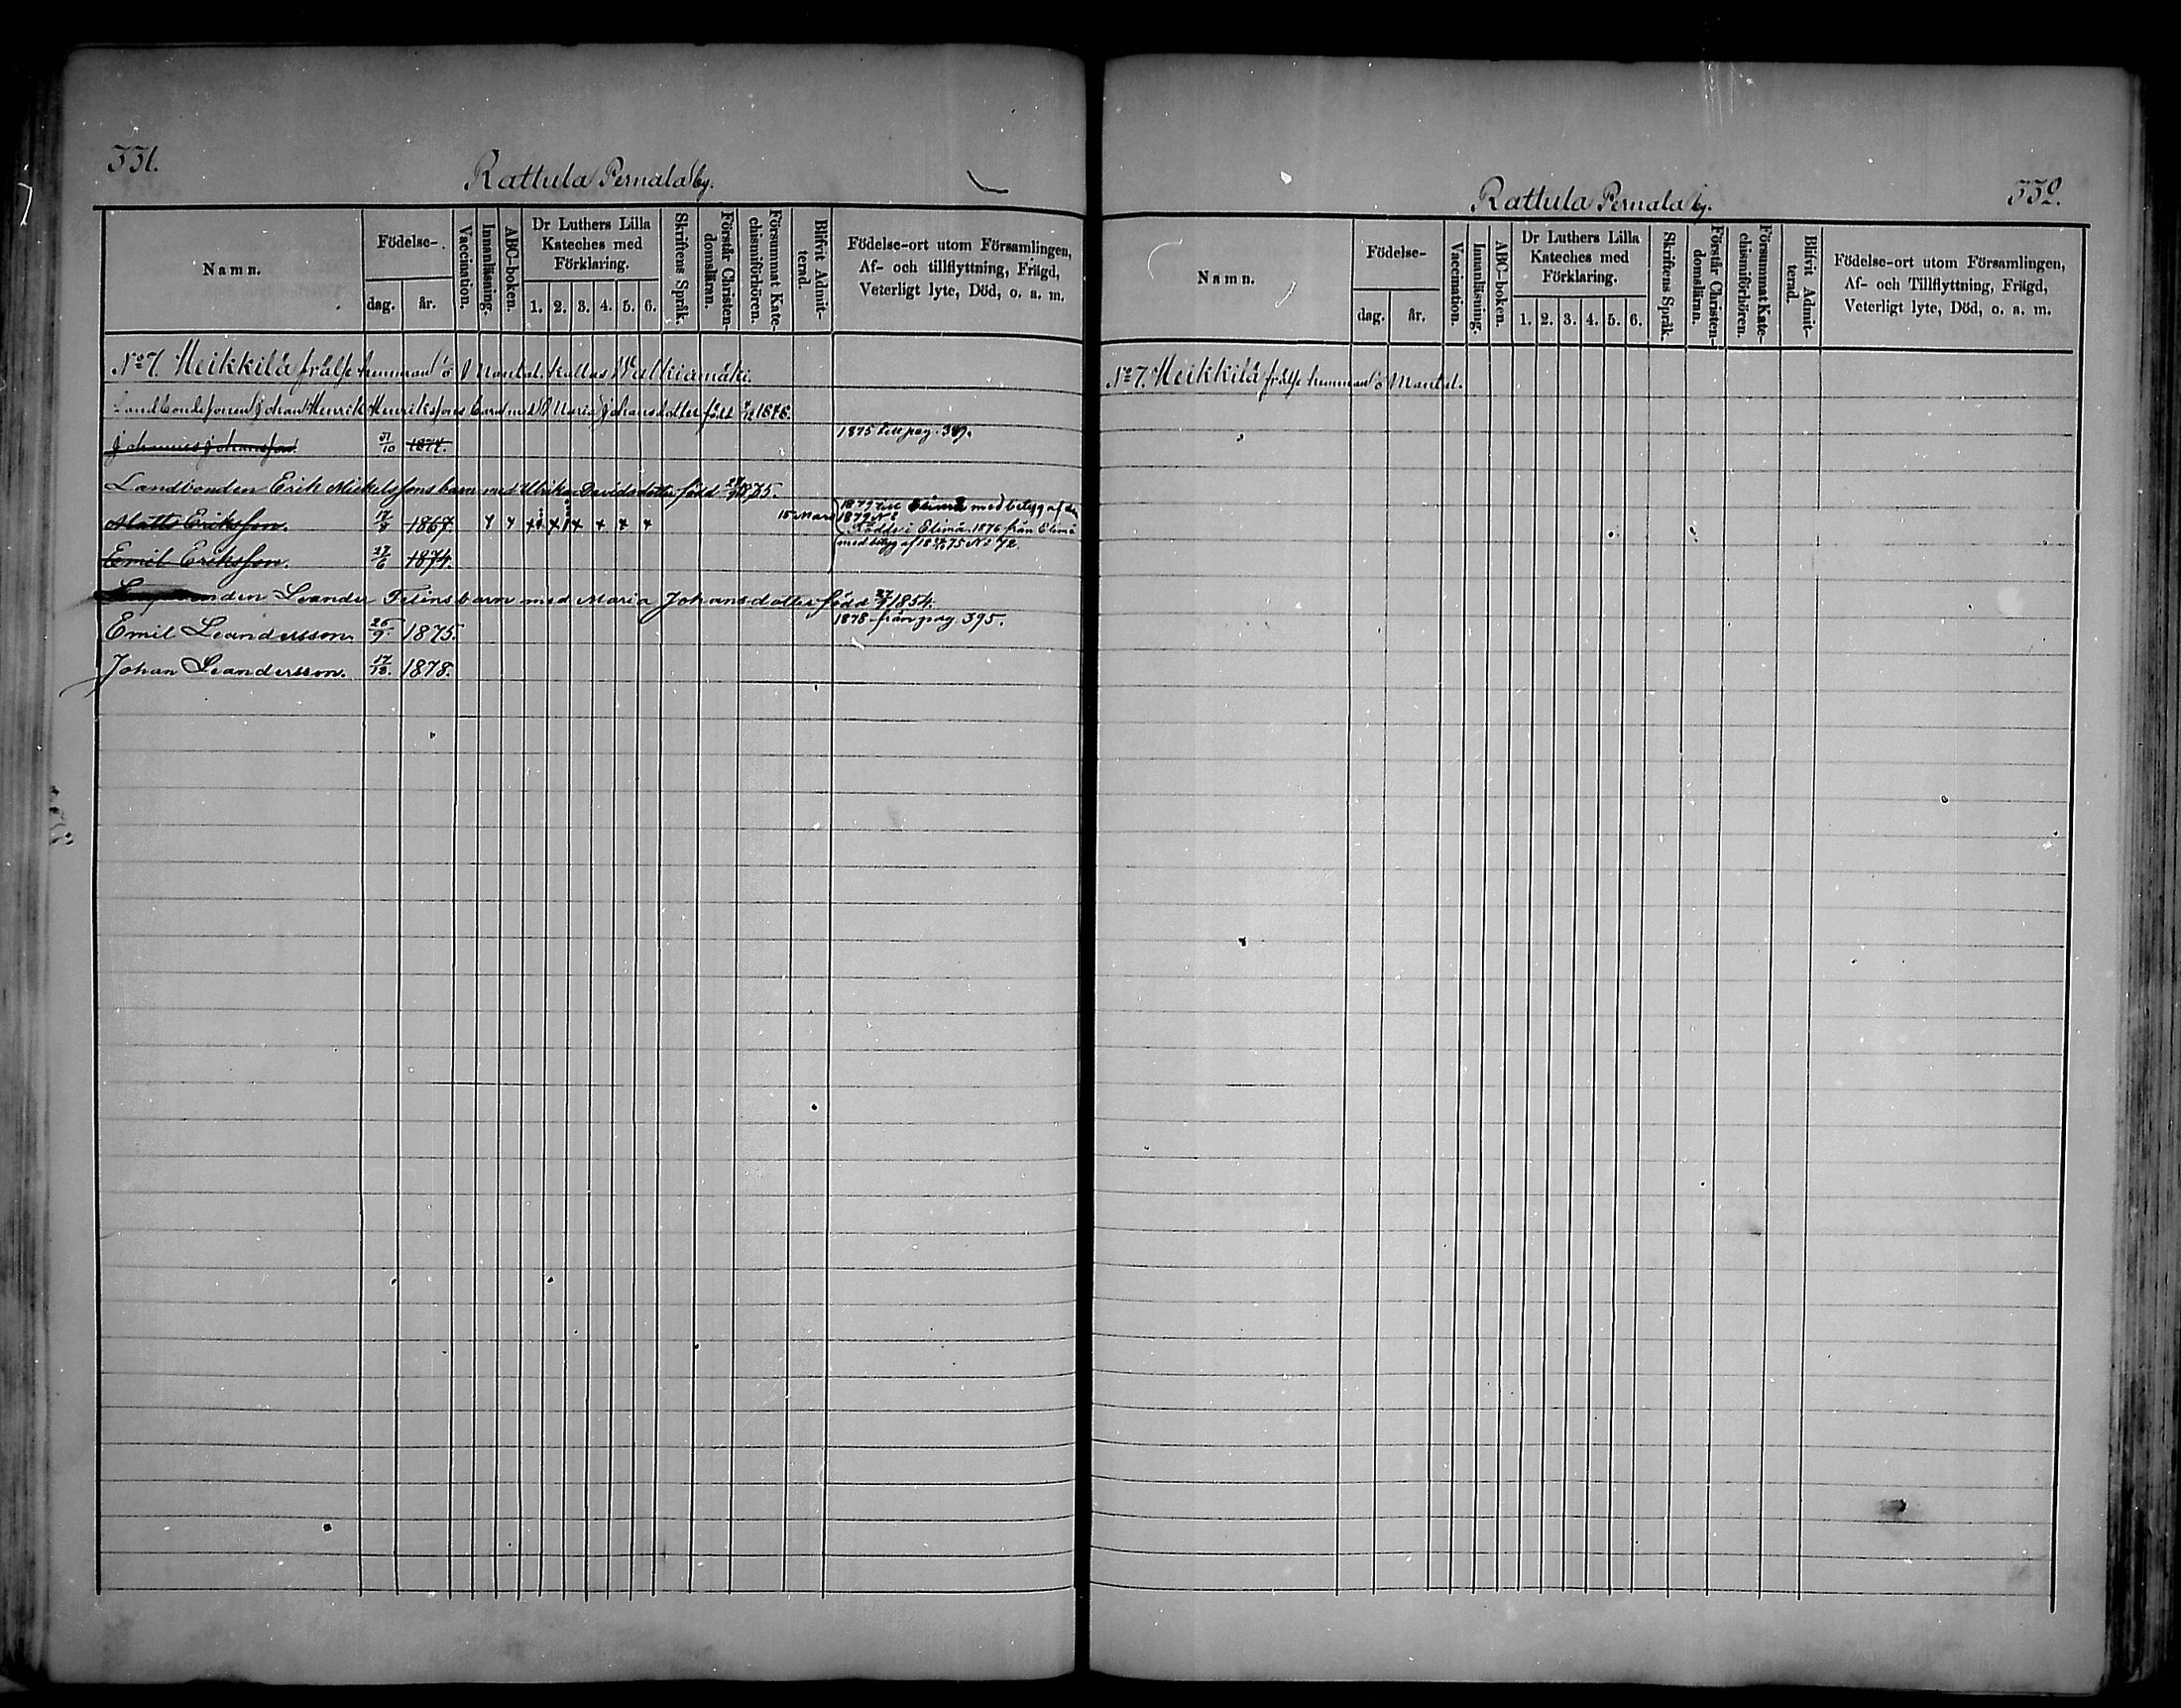 331.
Rattula Pernala by.
Namn.
Födelse-
dag.
år.
Vaccination.
Innanläsning.
ABC-boken.
Dr Luthers Lilla
Kateches med
Förklaring.
1. 2. 3. 4. 5. 6.
Skriftens Språk.
Förstår Christen-
domsläran.
Försummat Kate-
chismiförhören.
Blifvit Admit-
terad.
Födelse-ort utom Församlingen,
Af- och tillflyttning, Frägd,
Veterligt lyte, Död, o. a. m.
No 7. Heikkilä frälse hemman Mantal. kallas Walkiamäki.
Landbondesonen Johan Henrik Henrikssons barn med Maria Johansdotter född 1878.
Johannes Johansson 31/10 1874. 1875 till pag. 389.
Landbonden Erik Mickelssons barn med Ulrika Davidsdotter född 1835.
Matts Eriksson. 17/9 1867. 15 Mars 1879 till Elimä med betyg af den
1879 No
Födde i Elimä. 1876 från Elimä
med betyg af 1875 No 72.
Emil Eriksson. 27/6 1874.
Leander Felins barn med Maria Johansdotter född 27/7 1854.
Emil Leandersson. 25/9. 1875. 1878 från pag 395.
Johan Leandersson. 17/12. 1878.
332.
Rattula Pernala by.
Namn.
Födelse-
dag.
år.
Vaccination.
Innanläsning.
ABC-boken.
Dr Luthers Lilla
Kateches med
Förklaring.
1. 2. 3. 4. 5. 6.
Skriftens Språk.
Förstår Christen-
domsläran.
Försummat Kate-
chismiförhören.
Blifvit Admit-
terad.
Födelse-ort utom Församlingen,
Af- och Tillflyttning, Frägd,
Veterligt lyte, Död, o. a. m.
No 7. Heikkilä frälse hemman Mantal.